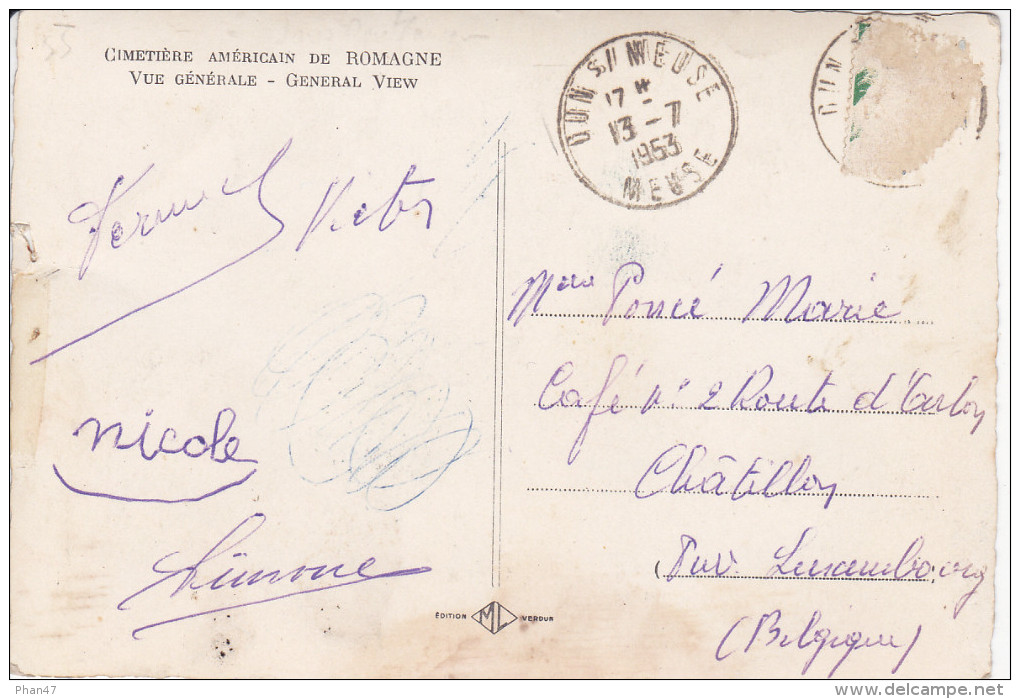 CIMETIÈRE AMÉRICAIN DE ROMAGNE
VUE GÉNÉRALE - GENERAL VIEW
DUN S/ MEUSE
17 H
13 - 7
1953
MEUSE
DUN
Victor
nicole
Simone
Mme Poncé Marie
Café n° 2 Route d'Arlon
Châtillon
(Prv. Luxembourg
(Belgique)
ÉDITION ML VERDUN
Phan47
delcampe.net